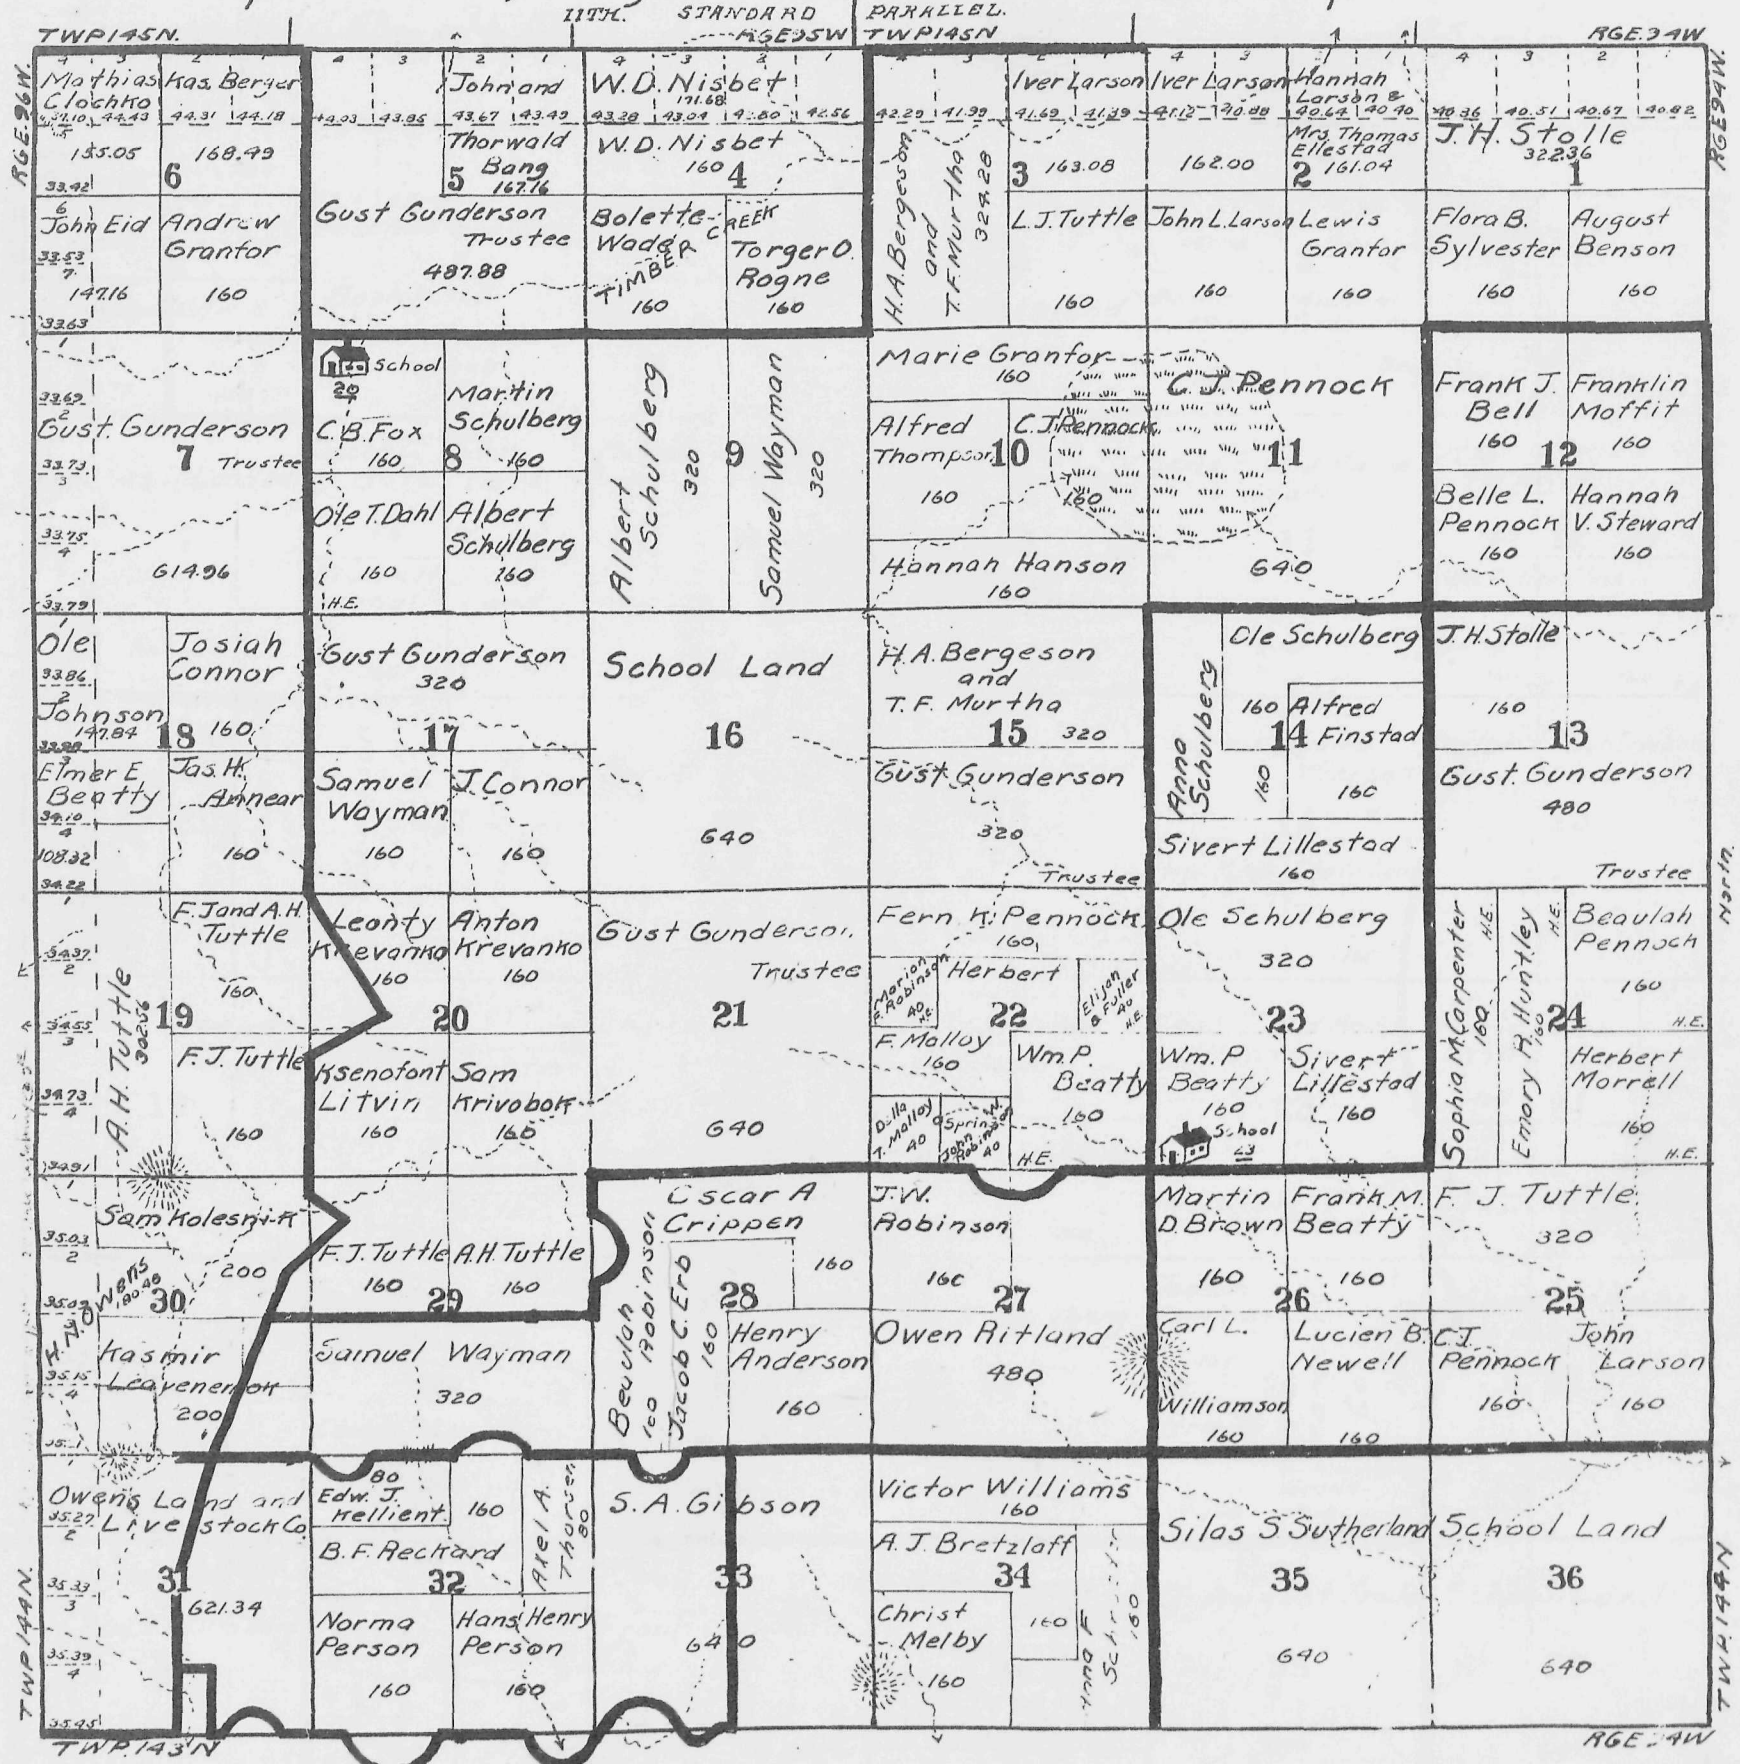 11TH. STANDARD PARALLEL.
TWP145N. RGE95W TWP145N RGE.94W
RGE.96W.
RGE94W.
4 3 2 1
Mathias Clochko
44.43
155.05
33.42
Kas. Berger
44.31 44.18
168.49
6
6
John Eid
33.53
7
147.16
33.63
Andrew Granfor
160
4 3 2 1
44.03 43.85 43.67 43.49
John and
Thorwald
Bang
167.16
5
Gust Gunderson
Trustee
487.88
4 3 2 1
W.D. Nisbet
171.68
43.28 43.04 42.80 42.56
W.D. Nisbet
160
4
Bolette Wade
160
TIMBER CREEK
Torger O. Rogne
160
42.29 41.99 41.69 41.39
H.A. Bergeson
and
T.F. Murtha
324.28
Iver Larson
3
163.08
L.J. Tuttle
160
4 3 2 1
Iver Larson
162.00
Hannah
Larson &
40.64 40.40
Mrs. Thomas
Ellestad
2
161.04
John L. Larson
160
Lewis
Granfor
160
4 3 2 1
40.36 40.51 40.67 40.82
J.H. Stolle
322.36
1
Flora B.
Sylvester
160
August
Benson
160
1
33.69
2
Gust. Gunderson
7
Trustee
33.73
3
33.75
4
614.96
33.79
School
20
C.B. Fox
160
Martin
Schulberg
160
8
Ole T. Dahl
160
H.E.
Albert
Schulberg
160
Albert
Schulberg
320
9
Samuel Wayman
320
Marie Granfor
160
Alfred
Thompson
160
C.J. Pennock
160
10
Hannah Hanson
160
C.J. Pennock
11
640
Frank J.
Bell
160
Franklin
Moffit
160
12
Belle L.
Pennock
160
Hannah
V. Steward
160
1
Ole
33.86
2
Johnson
147.84
Josiah
Connor
160
18
3
Elmer E.
Beatty
34.10
4
108.32
34.22
Jas. H.
Annear
160
Gust Gunderson
320
17
Samuel
Wayman
160
J. Connor
160
School Land
16
640
H.A. Bergeson
and
T.F. Murtha
15
320
Gust. Gunderson
320
Trustee
Anna
Schulberg
160
Ole Schulberg
160
Alfred
Finstad
160
14
Sivert Lillestad
160
J.H. Stolle
160
13
Gust. Gunderson
480
Trustee
North.
1
34.37
2
34.55
3
34.73
4
34.91
A.H. Tuttle
302.56
F.J and A.H.
Tuttle
160
19
F.J. Tuttle
160
Leonty
Krevanko
160
Anton
Krevanko
160
20
Ksenofont
Litvin
160
Sam
Krivobok
160
Gust Gunderson.
Trustee
21
640
Fern K. Pennock
160
Marion
F. Robinson
40
H.E.
Herbert
22
Elijah
B Fuller
40
H.E.
F. Malloy
160
Della
T. Malloy
40
Spring
John
Robinson
40
Wm. P.
Beatty
160
H.E.
Ole Schulberg
320
23
Wm. P
Beatty
160
School
23
Sivert
Lillestad
160
Sophia M. Carpenter
160
H.E.
Emory A. Huntley
160
H.E.
24
Beaulah
Pennock
160
H.E.
Herbert
Morrell
160
H.E.
1
Sam Kolesnik
35.03
2
200
Owens
180.48
30
35.15
4
Kasmir
Leavenenok
200
F.J. Tuttle
160
A.H. Tuttle
160
29
Samuel Wayman
320
Oscar A
Crippen
160
Beulah
Robinson
160
Jacob C. Erb
160
28
Henry
Anderson
160
J.W.
Robinson
160
27
Owen Ritland
480
Martin
D. Brown
160
Frank M.
Beatty
160
26
Carl L.
Williamson
160
Lucien B.
Newell
160
F. J. Tuttle
320
25
C.J.
Pennock
160
John
Larson
160
Owens Land and
Livestock Co.
35.27
2
31
35.33
3
621.34
35.39
4
35.45
80
Edw. J.
Kellient
B.F. Reckard
160
Axel A.
Thorsen
80
32
Norma
Person
160
Hans Henry
Person
160
S.A. Gibson
33
640
Victor Williams
160
A.J. Bretzlaff
160
34
Christ
Melby
160
160
Silas S Sutherland
35
640
School Land
36
640
TWP. 144N.
TWP. 144N
TWP. 143N